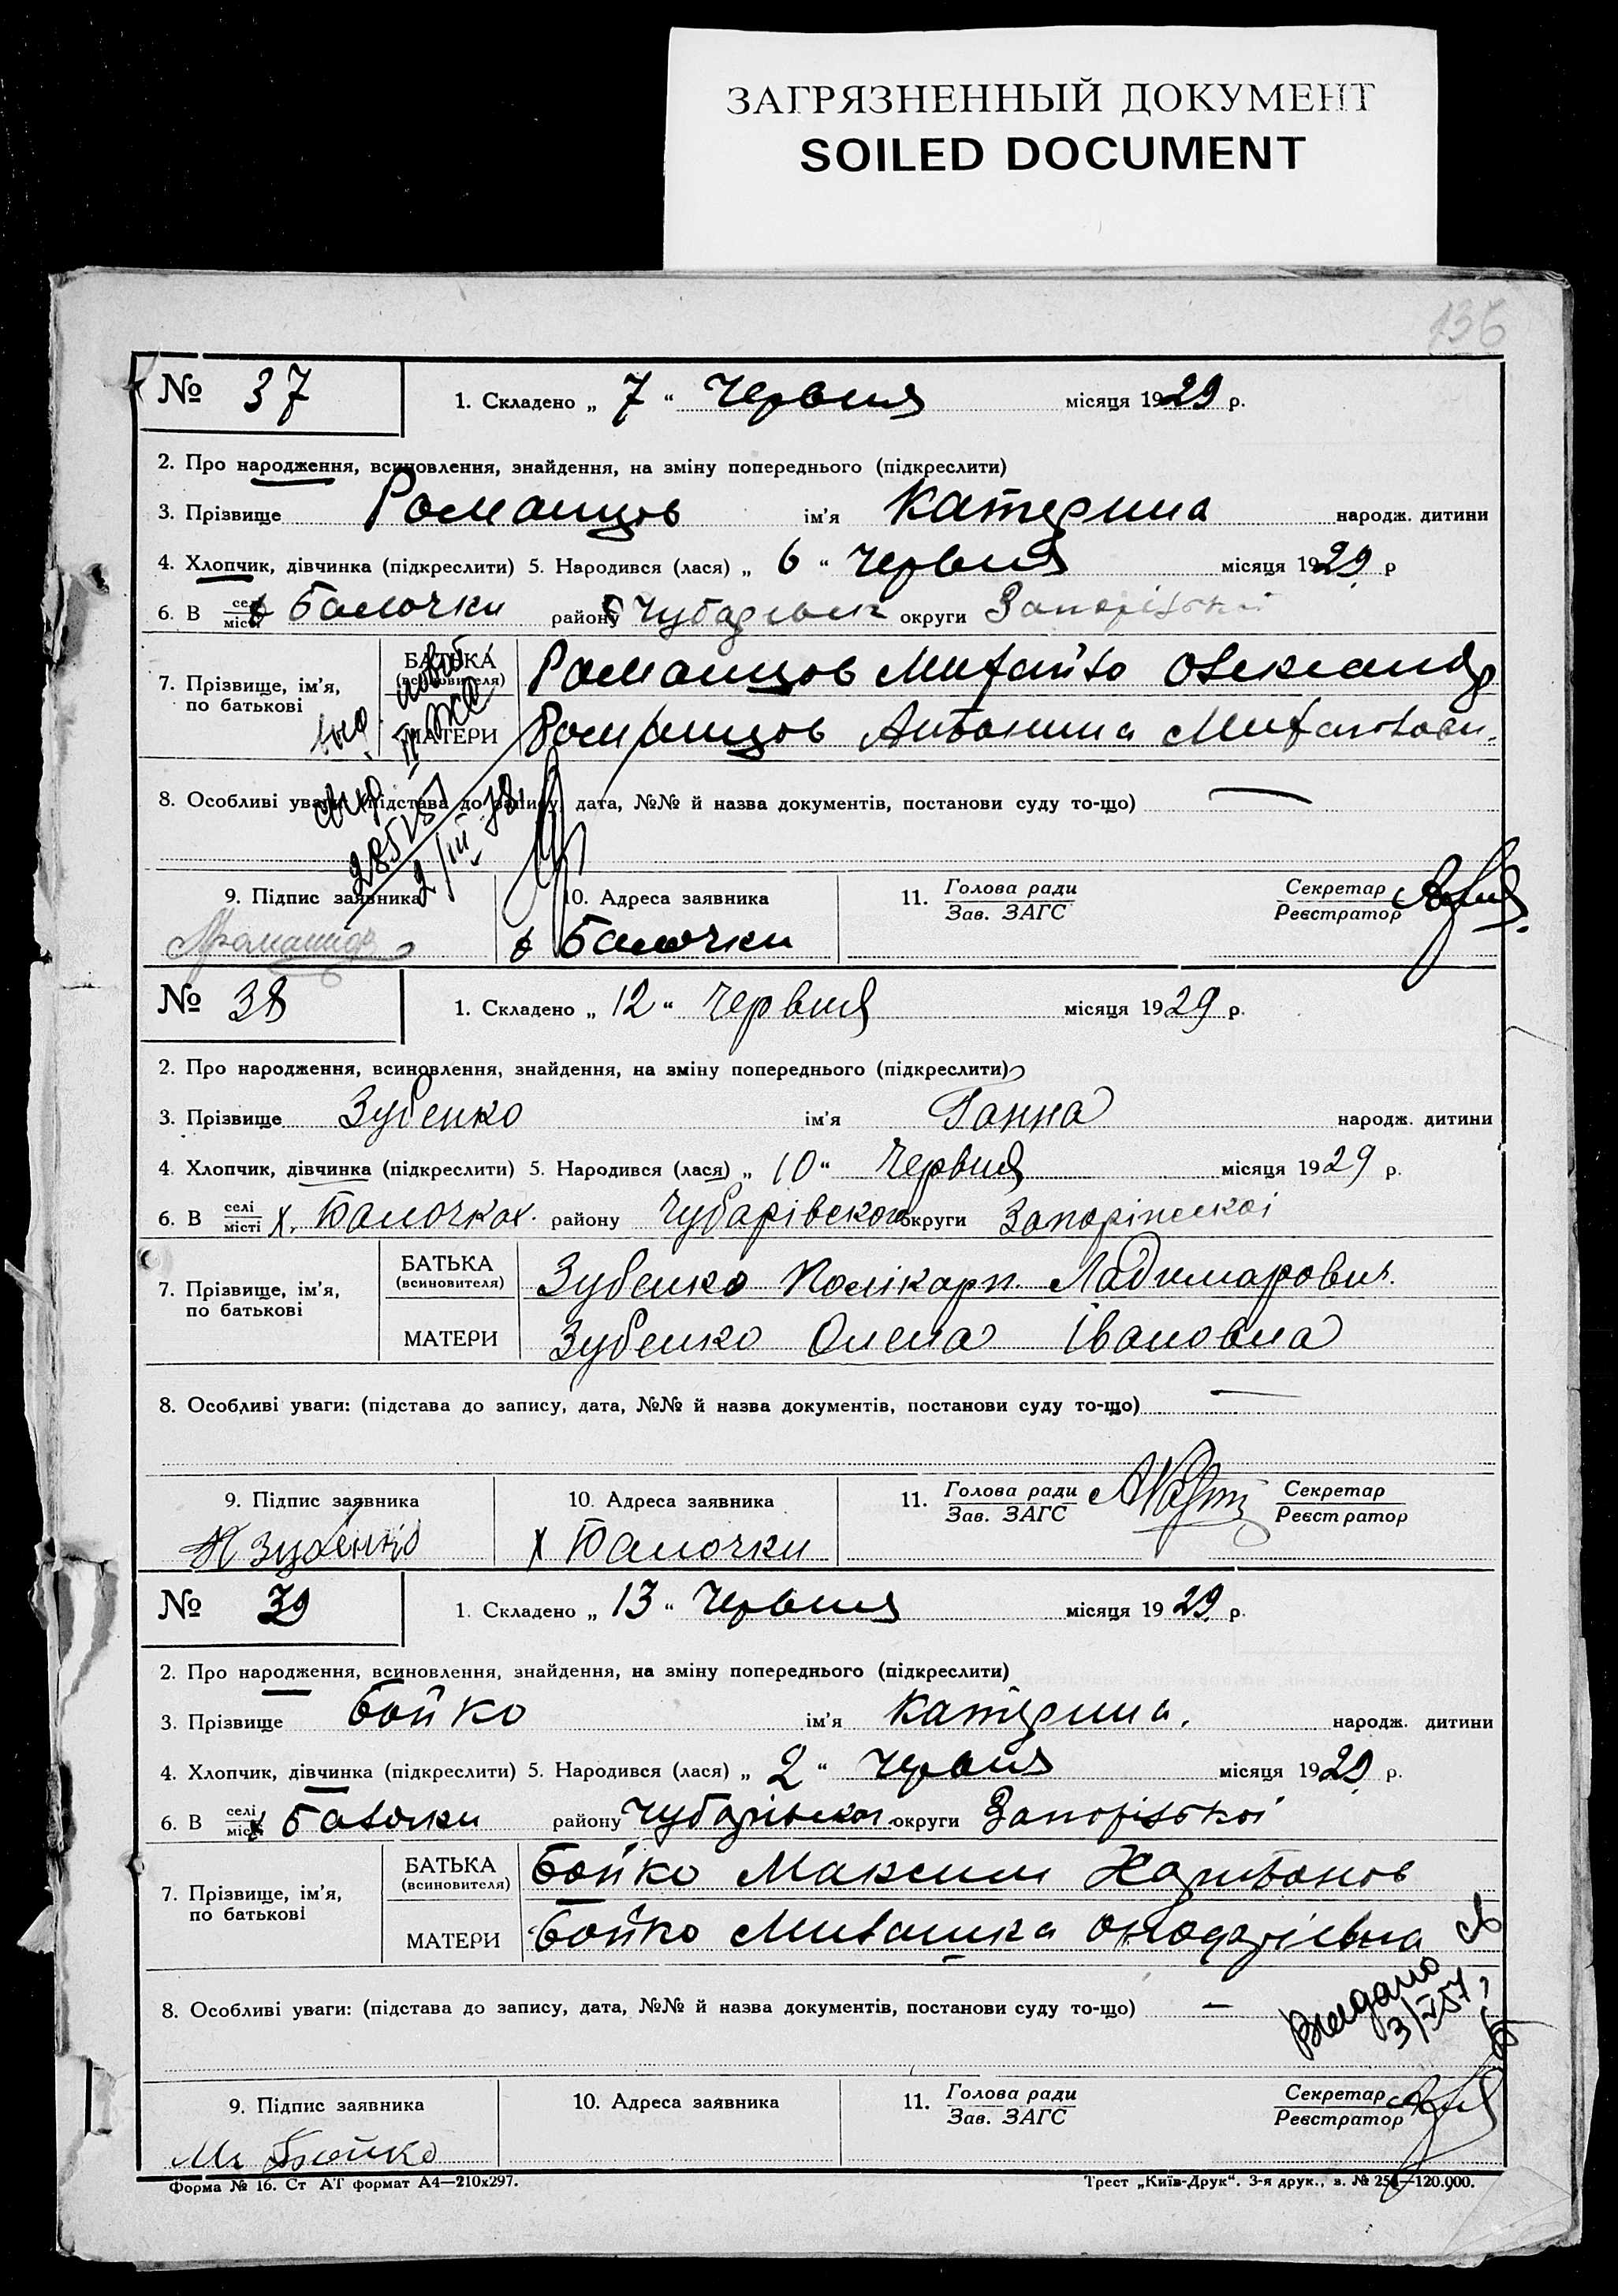 ЗАГРЯЗНЕННЫЙ ДОКУМЕНТ
SOILED DOCUMENT
136
№ 37 1. Складено „ 7 “ Червня місяця 1929 р.
2. Про народження, всиновлення, знайдення, на зміну попереднього (підкреслити)
3. Прізвище Романцов ім'я Катерина народж. дитини
4. Хлопчик, дівчинка (підкреслити) 5. Народився (лася) „ 6 “ Червня місяця 1929 р
6. В селі місті х Балочки району Чубарівськ округи Запорізької
7. Прізвище, ім'я, по батькові
БАТЬКА (всиновителя) Романцов Михайло Олександр
МАТЕРИ Романцов Антонина Михайлови.
8. Особливі уваги: (підстава до запису, дата, №№ й назва документів, постанови суду то-що) —
9. Підпис заявника 10. Адреса заявника 11. Голова ради Зав. ЗАГС Секретар Реєстратор
х Балочки
№ 38 1. Складено „ 12 “ Червня місяця 1929 р.
2. Про народження, всиновлення, знайдення, на зміну попереднього (підкреслити)
3. Прізвище Зубенко ім'я Ганна народж. дитини
4. Хлопчик, дівчинка (підкреслити) 5. Народився (лася) „ 10 “ Червня місяця 1929 р.
6. В селі місті х. Балочках. району Чубарівского округи Запоріжскої
7. Прізвище, ім'я, по батькові
БАТЬКА (всиновителя) Зубенко Полікарп Ладимарович.
МАТЕРИ Зубенко Олена Івановна
8. Особливі уваги: (підстава до запису, дата, №№ й назва документів, постанови суду то-що) —
9. Підпис заявника 10. Адреса заявника 11. Голова ради Зав. ЗАГС Секретар Реєстратор
П Зубенко х Балочки
№ 39 1. Складено „ 13 “ Червня місяця 1929 р.
2. Про народження, всиновлення, знайдення, на зміну попереднього (підкреслити)
3. Прізвище Бойко ім'я Катерина. народж. дитини
4. Хлопчик, дівчинка (підкреслити) 5. Народився (лася) „ 2 “ Червня місяця 1929 р.
6. В селі місті х Балочки району округи Запорізької
7. Прізвище, ім'я, по батькові
БАТЬКА (всиновителя) Бойко Максим Харитонов
МАТЕРИ Бойко
8. Особливі уваги: (підстава до запису, дата, №№ й назва документів, постанови суду то-що) —
9. Підпис заявника 10. Адреса заявника 11. Голова ради Зав. ЗАГС Секретар Реєстратор
М Бойко
Форма № 16. Ст АТ формат А4—210х297. Трест „Київ-Друк“. 3-я друк., з. № 254—120.000.